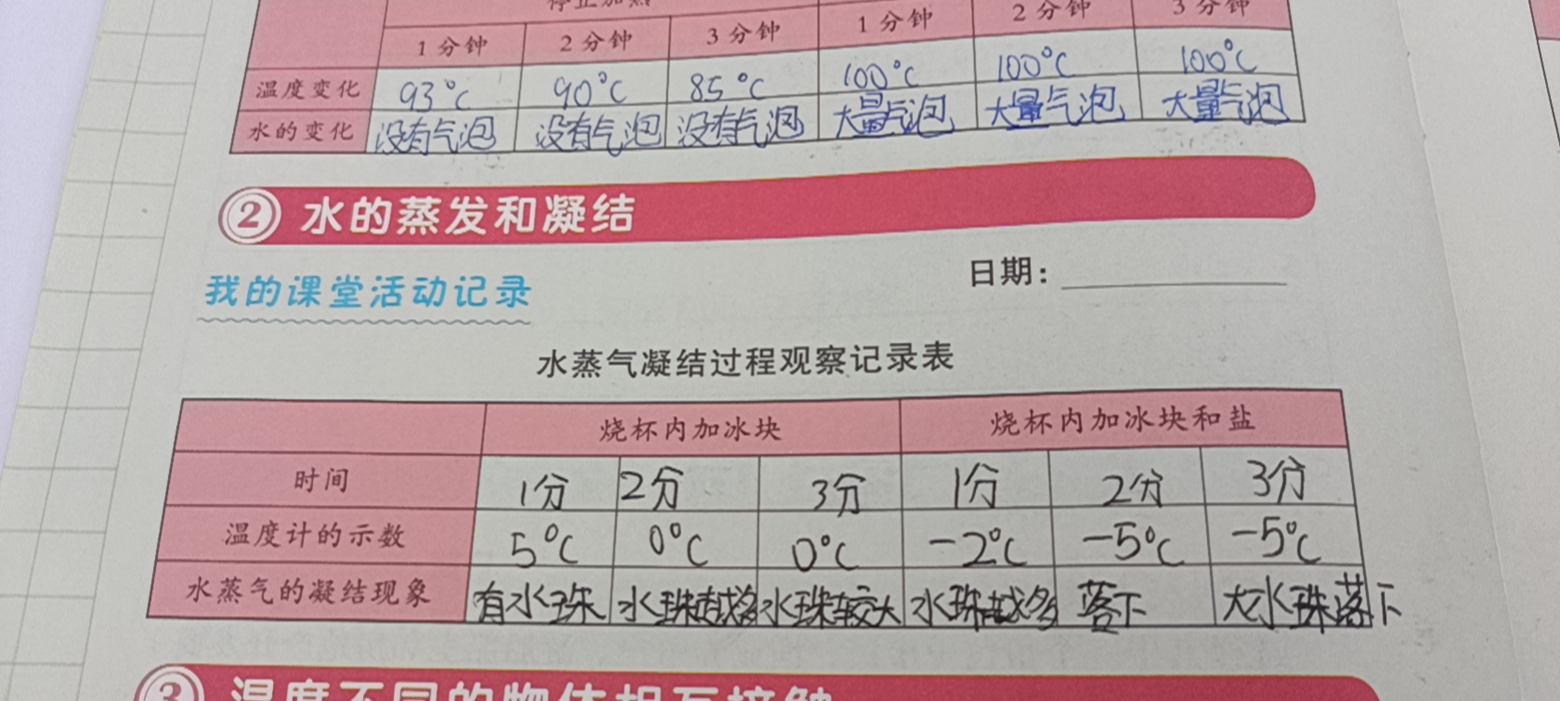 停止加热
1分钟 2分钟 3分钟 1分钟 2分钟 3分钟
温度变化 93°C 90°C 85°C 100°C 100°C 100°C
水的变化 没有气泡 没有气泡 没有气泡 大量气泡 大量气泡 大量气泡
② 水的蒸发和凝结
我的课堂活动记录 日期:
水蒸气凝结过程观察记录表
烧杯内加冰块 烧杯内加冰块和盐
时间 1分 2分 3分 1分 2分 3分
温度计的示数 5°C 0°C 0°C -2°C -5°C -5°C
水蒸气的凝结现象 有水珠 水珠越多 水珠较大 水珠越多 落下 大水珠落下
③ 温度不同的物体相互接触